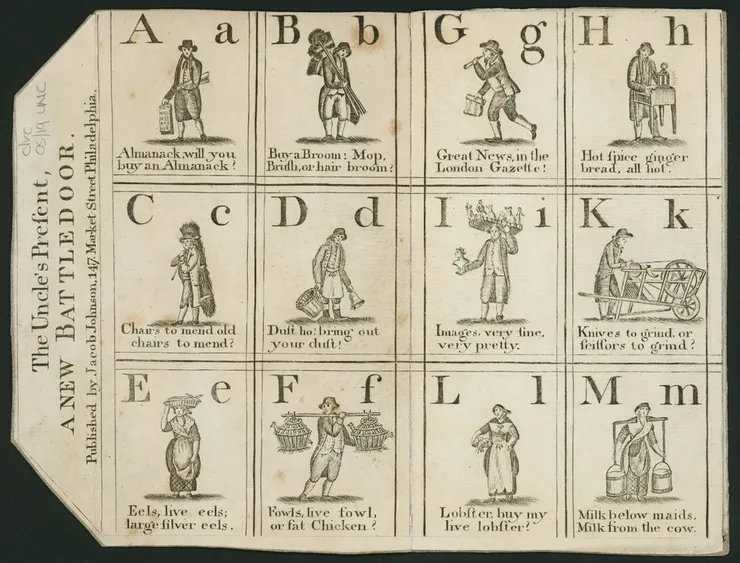 The Uncle's Preſent,
A NEW BATTLEDOOR.
Published by Jacob Johnson, 147 Market Street Philadelphia.
A a
Almanack, will you
buy an Almanack?
B b
Buy a Broom; Mop,
Bruſh, or hair broom?
C c
Chairs to mend old
chairs to mend?
D d
Duſt ho! bring out
your duſt!
E e
Eels, live eels;
large ſilver eels.
F f
Fowls, live fowl,
or fat Chicken?
G g
Great News, in the
London Gazette!
H h
Hot ſpice ginger
bread, all hot.
I i
Images, very fine,
very pretty.
K k
Knives to grind, or
ſciſſors to grind?
L l
Lobſter, buy my
live lobſter?
M m
Milk below maids,
Milk from the cow.